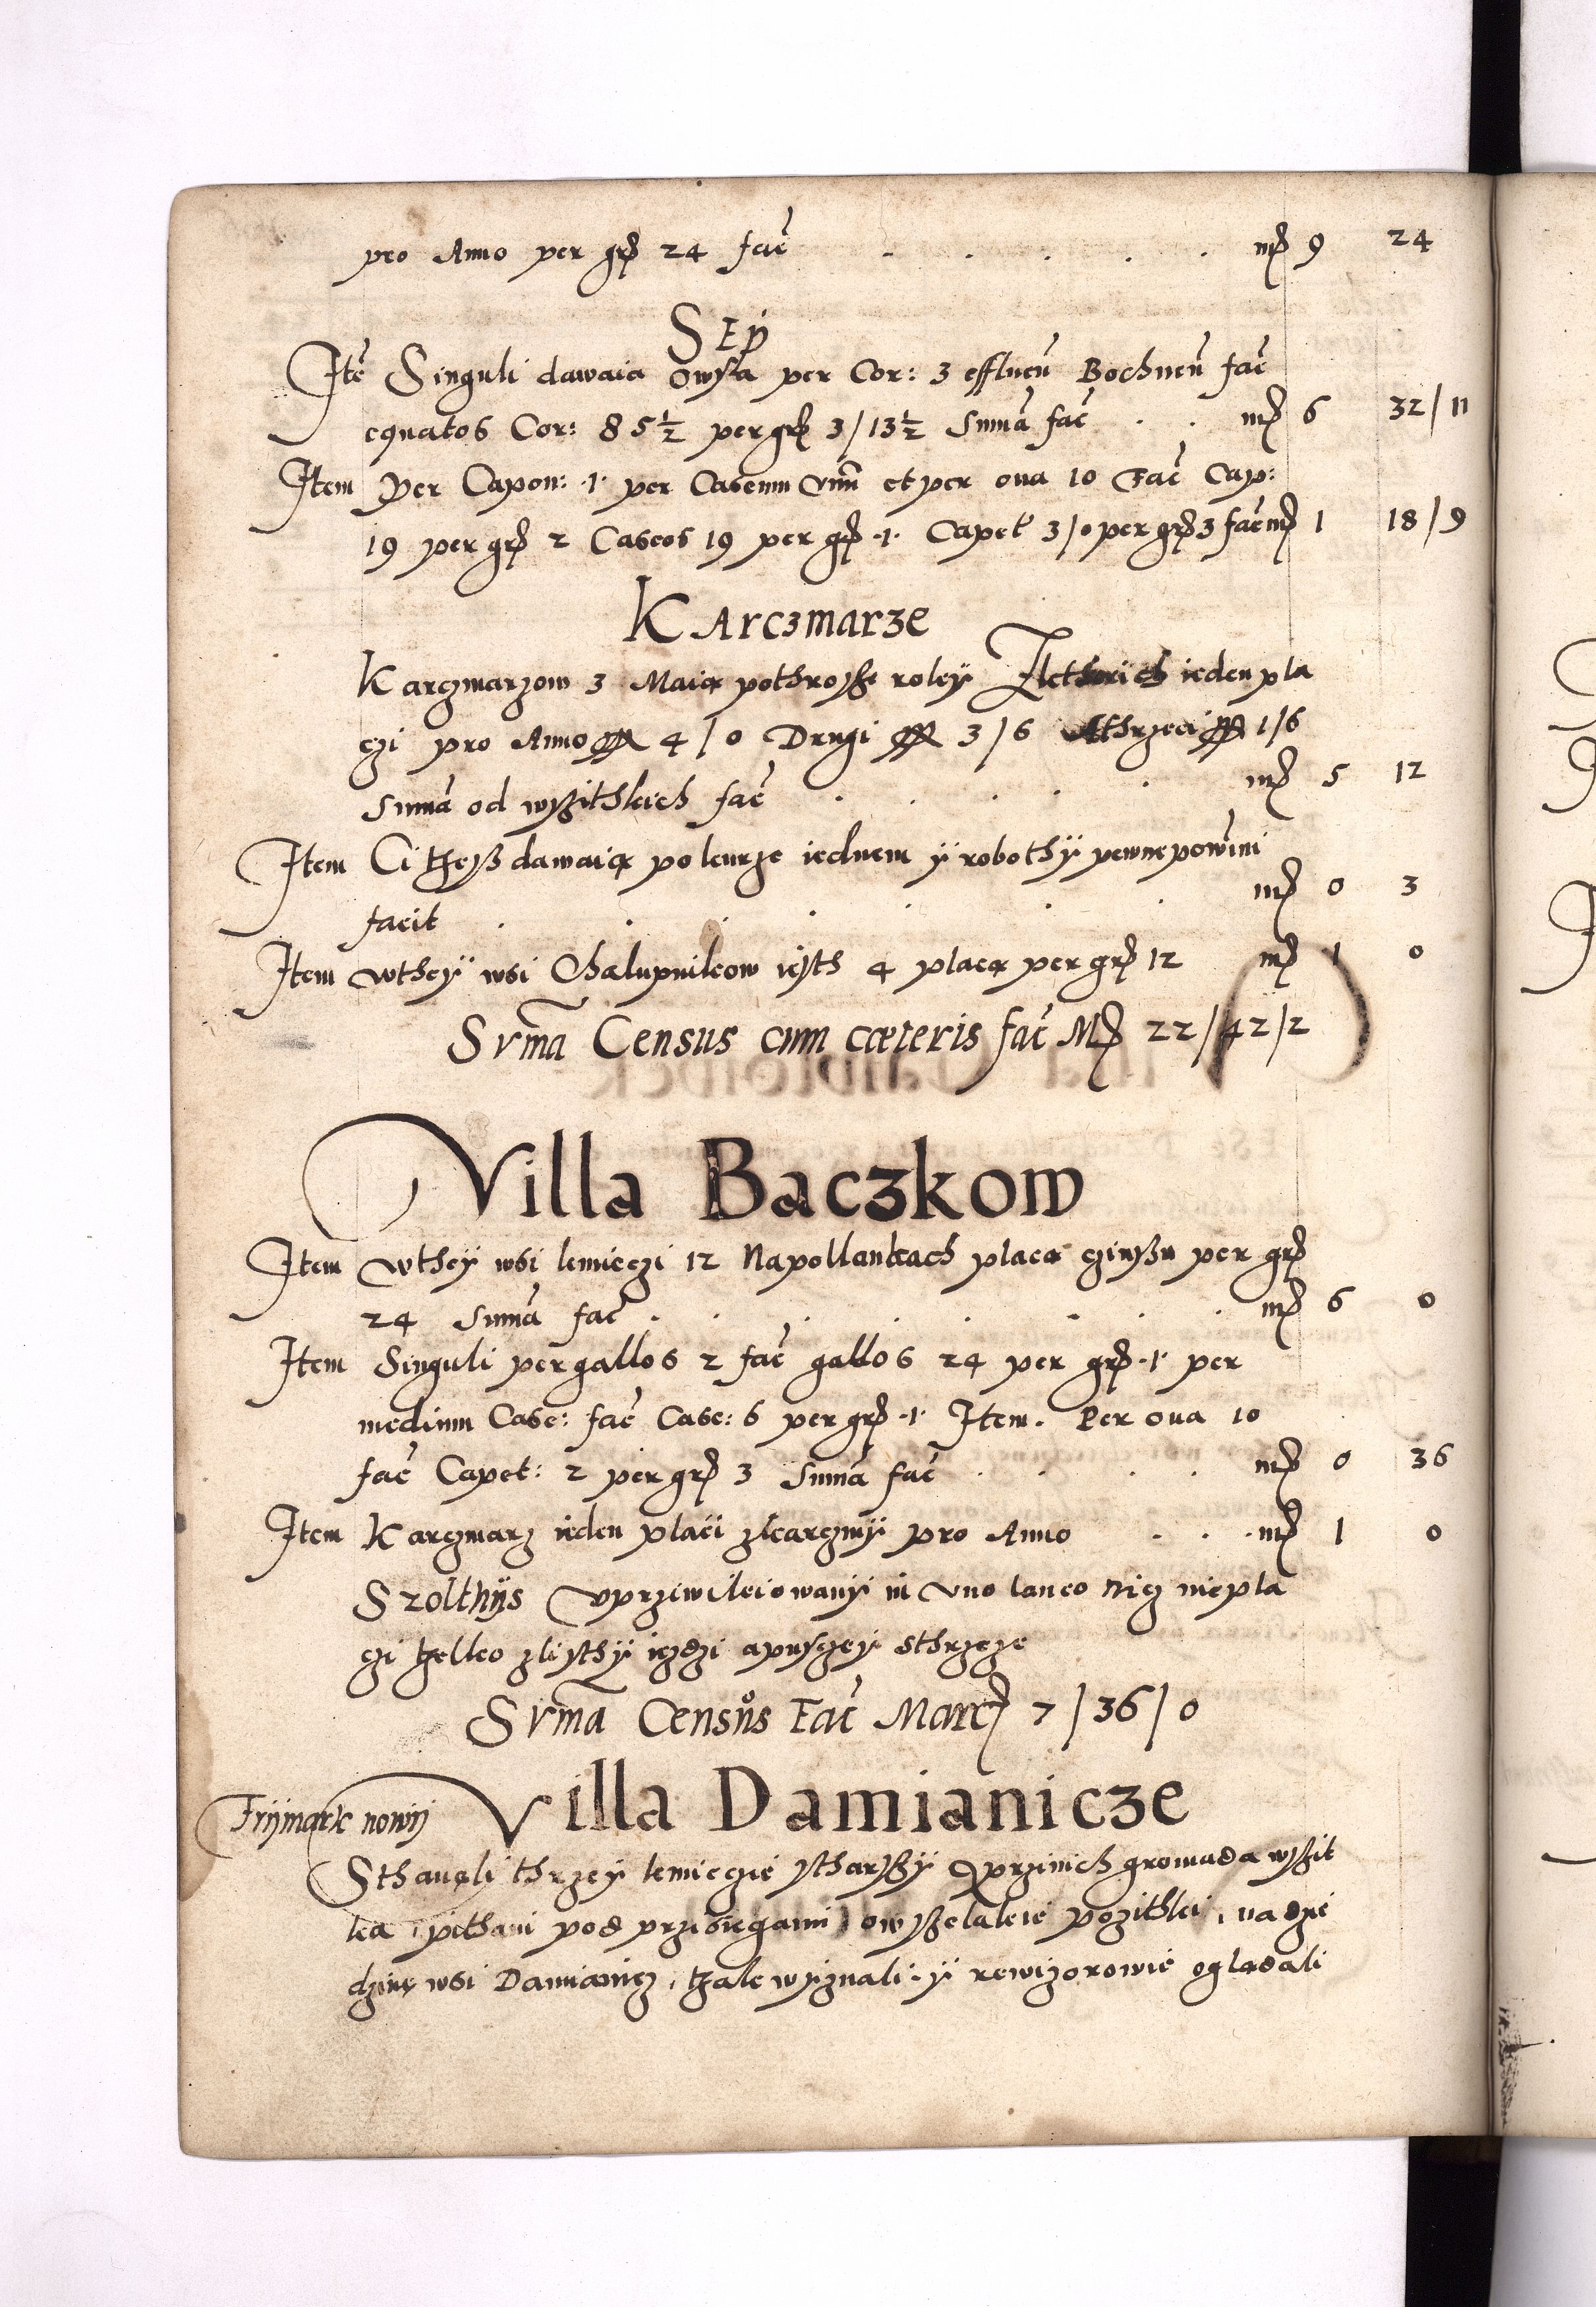 pro Anno per gr̃ 24 fac̃ . . . . . mr̃ 9 24
SEp
Itẽ Singuli dawaia owsa per Cor: 3 efflueñ Bochneñ fac̃
equatos Cor: 85½ per gr̃ 3/13½ Sum̃a fac̃ . . mr̃ 6 32/11
Item Per Capon: ·1· per Caseum vnũ et per oua 10 Fac̃ Cap:
19 per gr̃ 2 Caseos 19 per gr̃ ·1· Capet 3/0 per gr̃ 3 fac̃ mr̃ 1 18/9
KArczmarze
Karczmarzow 3 Maią pothroszе roleÿ Z kthorich ieden pla
czi pro Anno 4/0 Drugi 3/6 Athrzeci 1/6
Sum̃a od wszithkich fac̃ . . . . . mr̃ 5 12
Item Ci thesz dawaią po kurze iednem ÿ robothÿ pewne powĩni
facit . . . . . . . mr̃ 0 3
Item wtheÿ wsi Chalupnikow iesth 4 placą per gr̃ 12 mr̃ 1 0
Svm̃a Census cum cæteris fac̃ Mr̃ 22/42/2
Villa Baczkow
Item wtheÿ wsi kmieczi 12 Napollankach placą czinszu per gr̃
24 Sum̃a fac̃ . . . . . . . mr̃ 6 0
Item Singuli per gallos 2 fac̃ gallos 24 per gr̃ ·1· per
medium Case: fac̃ Case: 6 per gr̃ ·1· Item. Per oua 10
fac̃ Capet: 2 per gr̃ 3 Sum̃a fac̃ . . . . mr̃ 0 36
Item Karczmarz ieden placi zkarczmÿ pro Anno . . . mr̃ 1 0
Szolthÿs vprziwileiowanÿ in vno laneo nicz niepla
czi tÿlko zlisthÿ iezdzi apusczeÿ sthrzeze
Svm̃a Censůs Fac̃ Marc̃ 7/36/0
Villa Damianicze
Frÿmark nowÿ
Sthanęli thrzeÿ kmieczie stharszÿ przinich gromada wszit
ka pithani pod przisięgami owszelakie pozithki, nadzie
dzinę wsi Damianicz, thak wÿznali ÿ rewizorowie ogladali